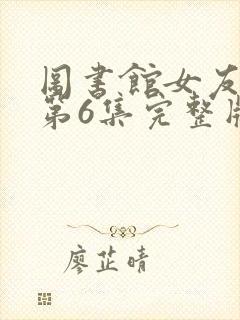 圖書館女友
第6集完整版
廖芷晴